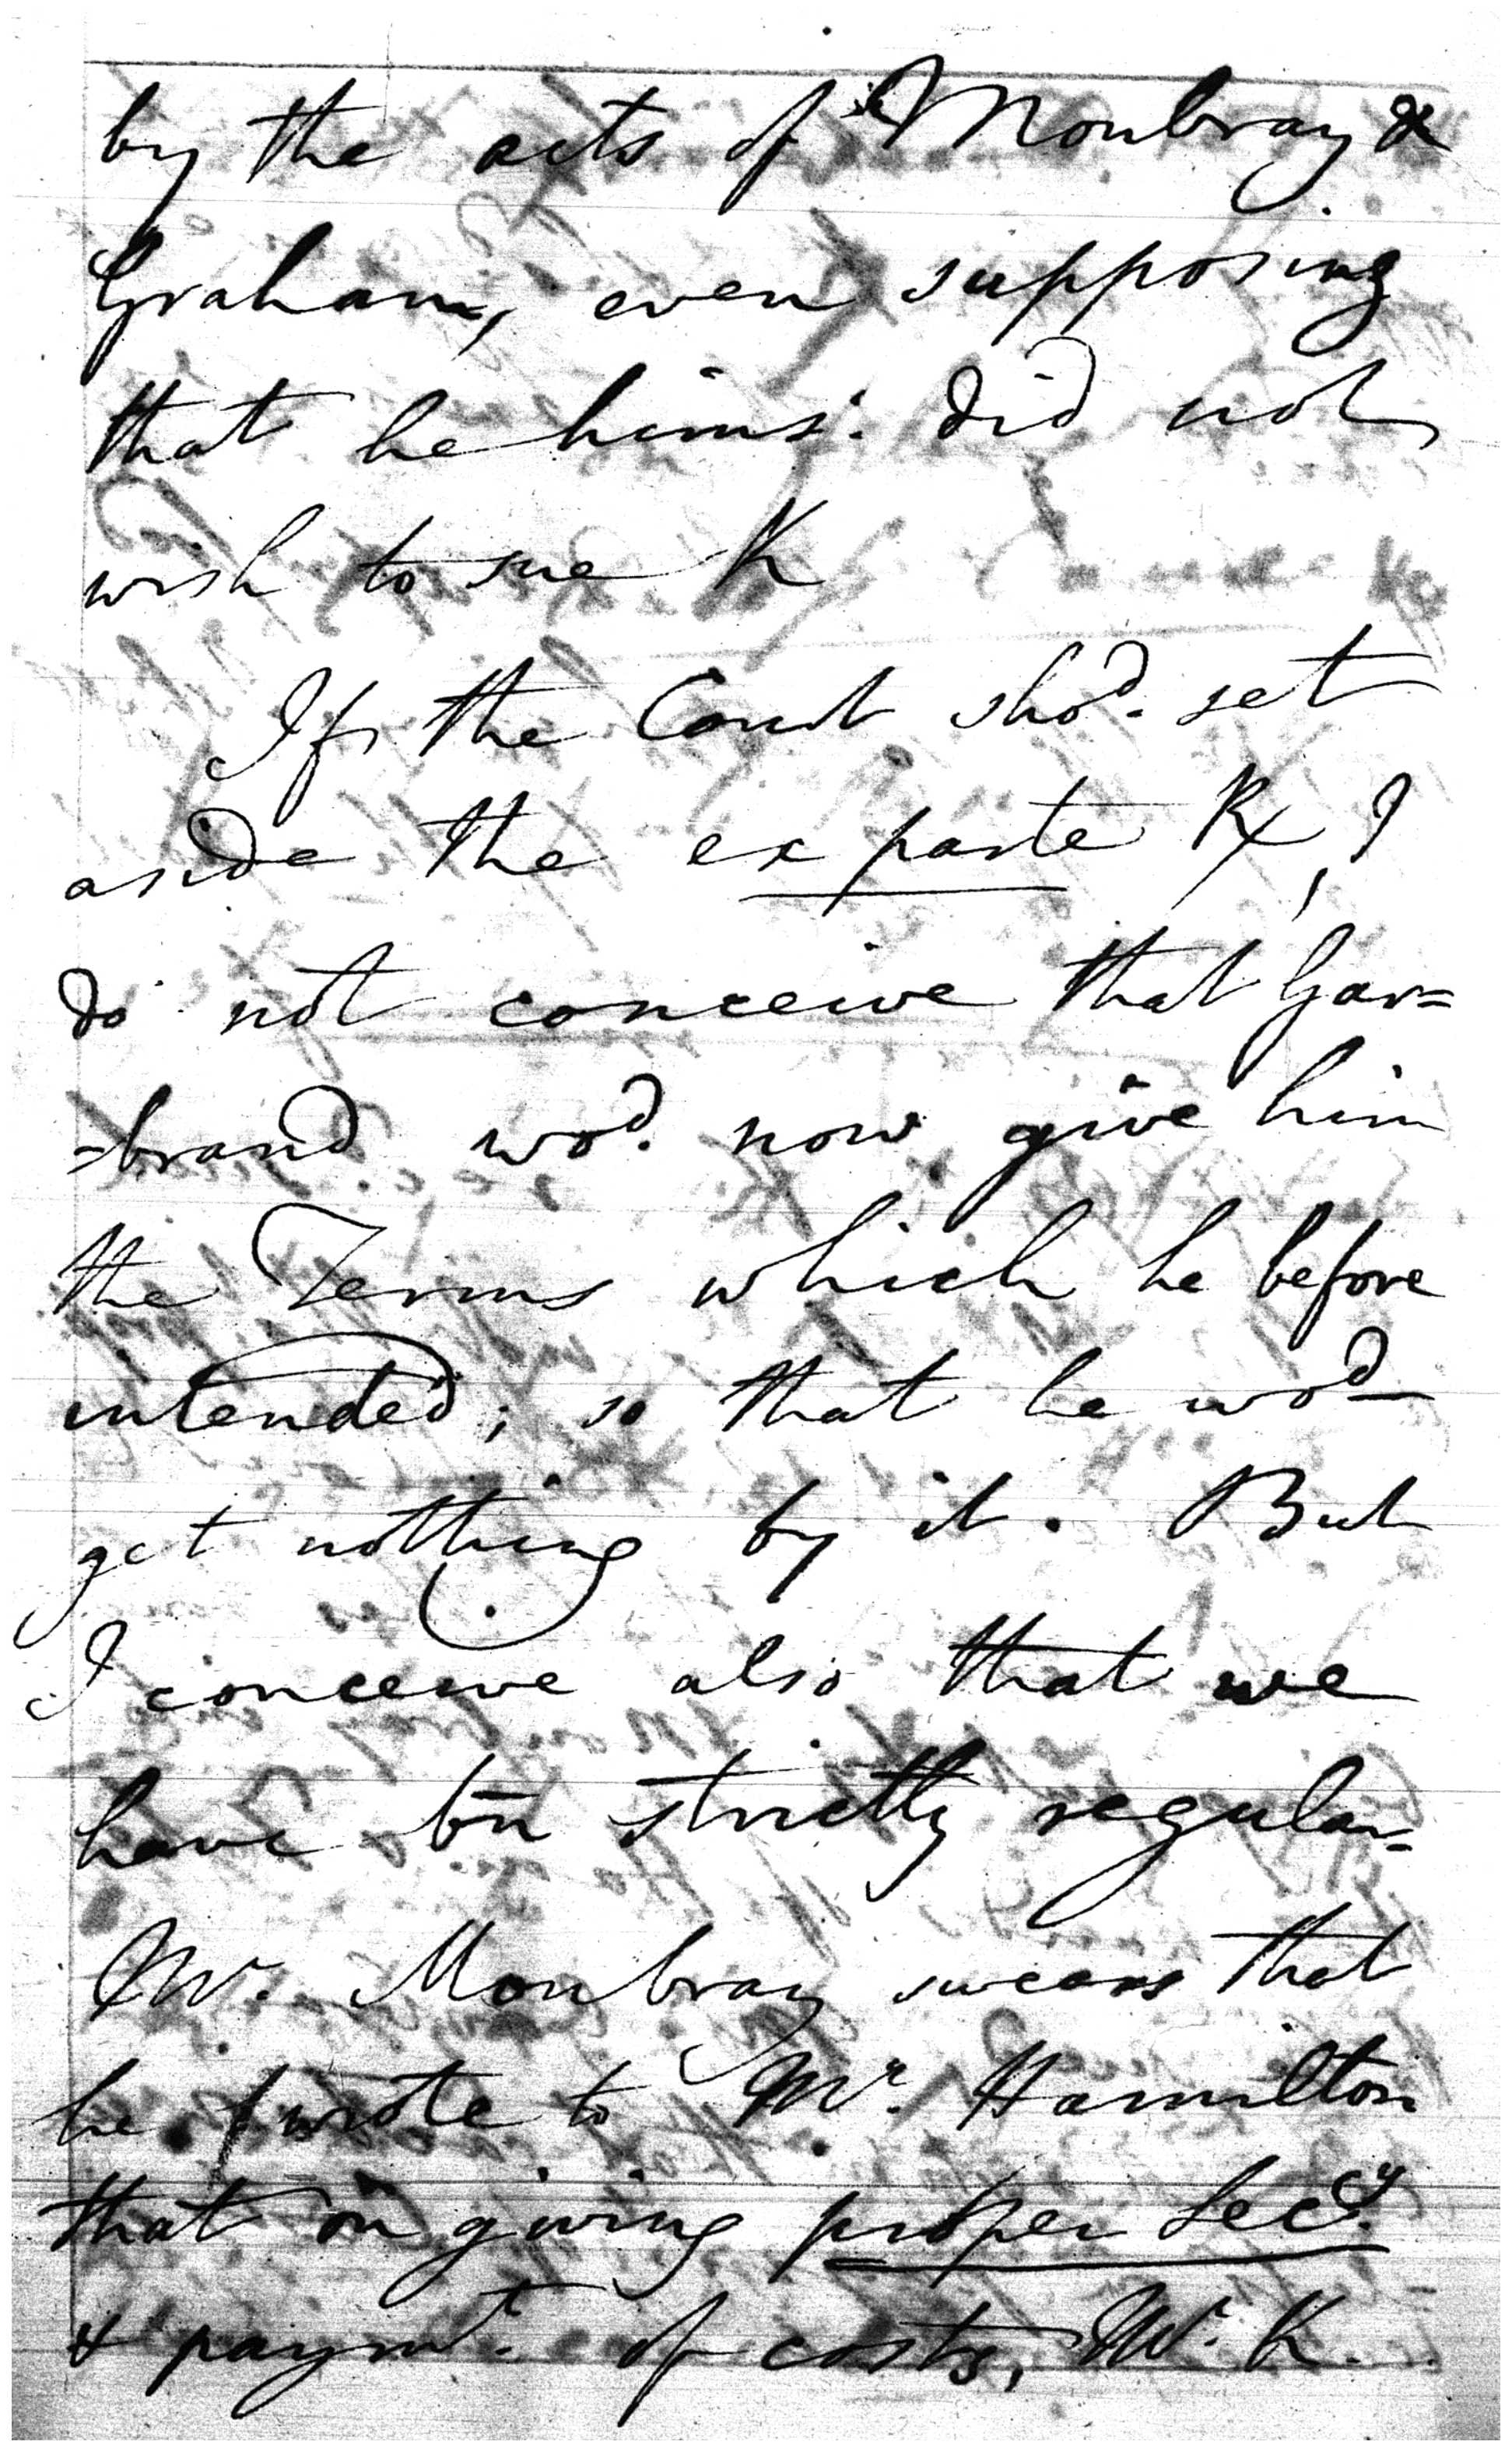 by the acts of Moubray &
Graham, even supposing
that he hims: did not
wish to sue K
If the Court shod. set
aside the ex parte Rx, I
do not conceive that Gar=
=brand wod. now give him
the Terms which he before
intended; so that he wod
get nothing by it. But
I conceive also that we
have bn strictly regular=
Mr. Moubray swears that
he wrote to Mr. Hamilton
that on giving proper Secy.
& paymt. of costs, Mr. K.